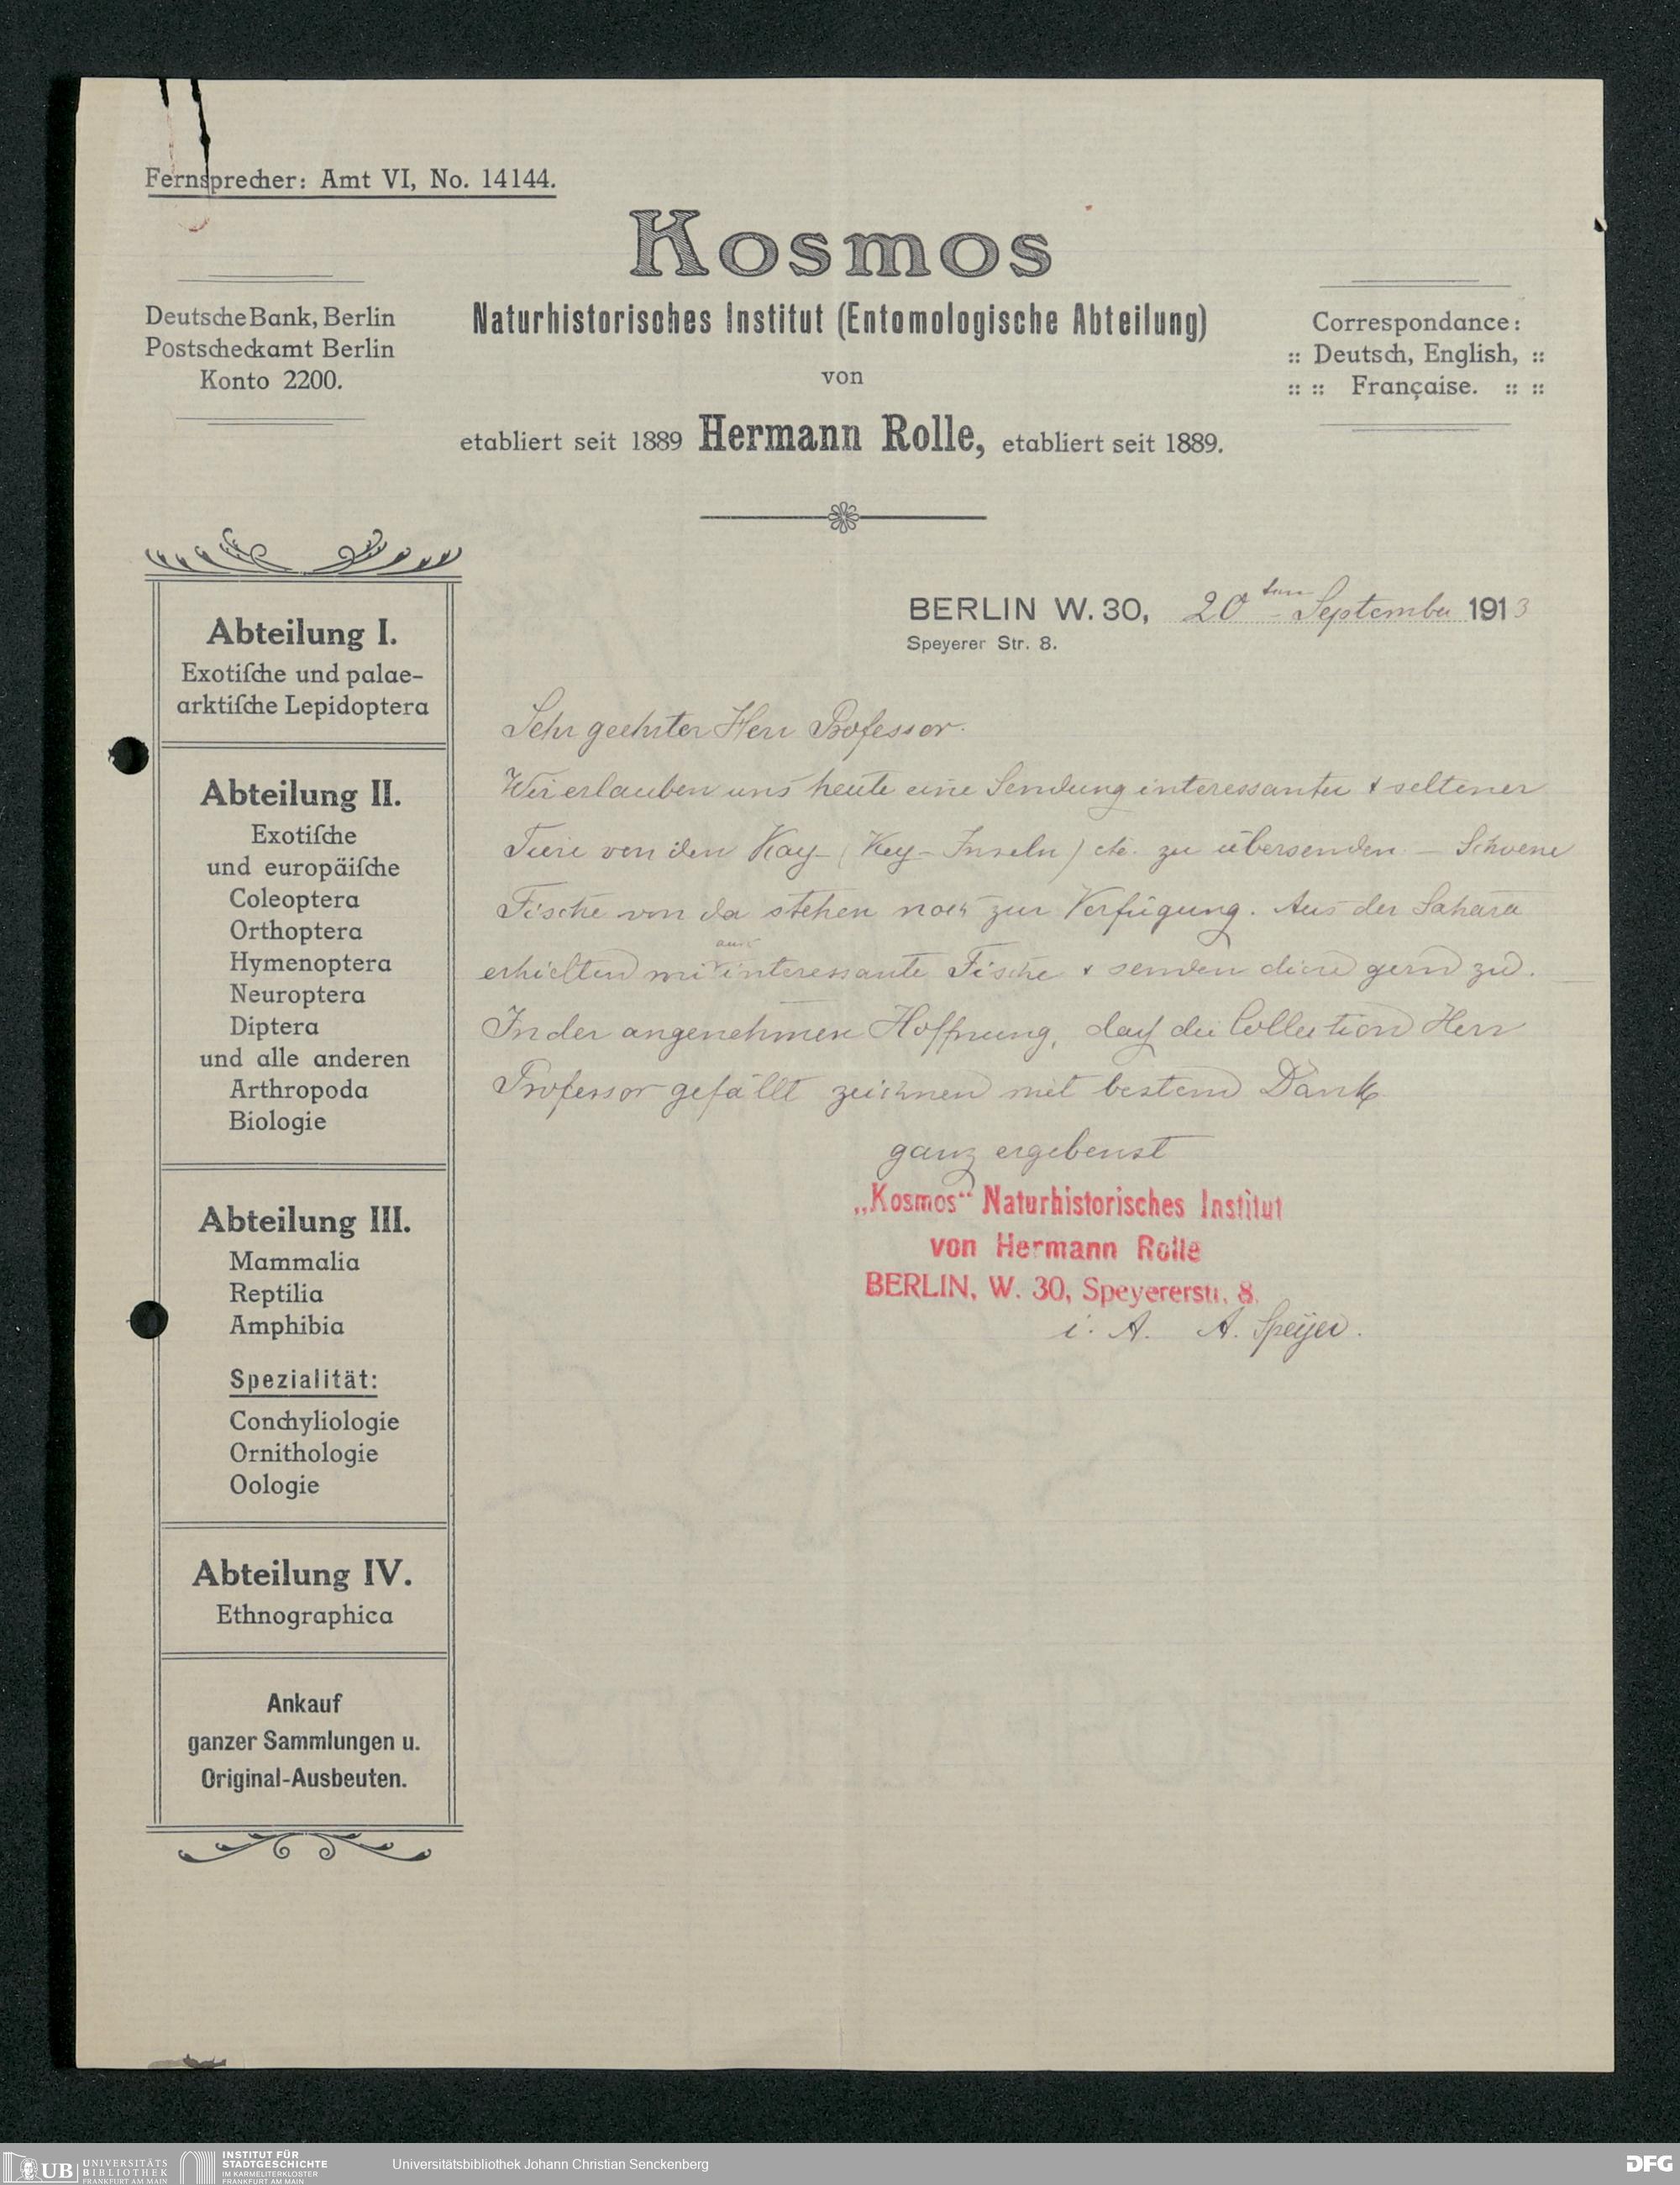 Fernsprecher: Amt VI, No. 14144.
Kosmos
Naturhistorisches Institut (Entomologische Abteilung)
von
etabliert seit 1889 Hermann Rolle, etabliert seit 1889.
Deutsche Bank, Berlin
Postscheckamt Berlin
Konto 2200.
Correspondance:
:: Deutsch, English, ::
:: :: Française. :: ::
BERLIN W. 30, 20ten September 1913
Speyerer Str. 8.
Abteilung I.
Exotiſche und palae-
arktiſche Lepidoptera
Abteilung II.
Exotiſche
und europäiſche
Coleoptera
Orthoptera
Hymenoptera
Neuroptera
Diptera
und alle anderen
Arthropoda
Biologie
Abteilung III.
Mammalia
Reptilia
Amphibia
Spezialität:
Conchyliologie
Ornithologie
Oologie
Abteilung IV.
Ethnographica
Ankauf
ganzer Sammlungen u.
Original-Ausbeuten.
Sehr geehrter Herr Professor.
Wir erlauben uns heute eine Sendung interessanter & seltener
Tiere von den Kay- (Key-Inseln) etc. zu übersenden – Schoene
Fische von da stehen noch zur Verfügung. Aus der Sahara
erhielten wir auch interessante Fische & senden diese gern zu.
In der angenehmen Hoffnung, daß die Collection Herr
Professor gefällt zeichnen mit bestem Dank
ganz ergebenst
„Kosmos“ Naturhistorisches Institut
von Hermann Rolle
BERLIN, W. 30, Speyererstr. 8.
i. A. A. Speijer.
UB UNIVERSITÄTS
BIBLIOTHEK
FRANKFURT AM MAIN
INSTITUT FÜR
STADTGESCHICHTE
IM KARMELITERKLOSTER
FRANKFURT AM MAIN
Universitätsbibliothek Johann Christian Senckenberg
DFG